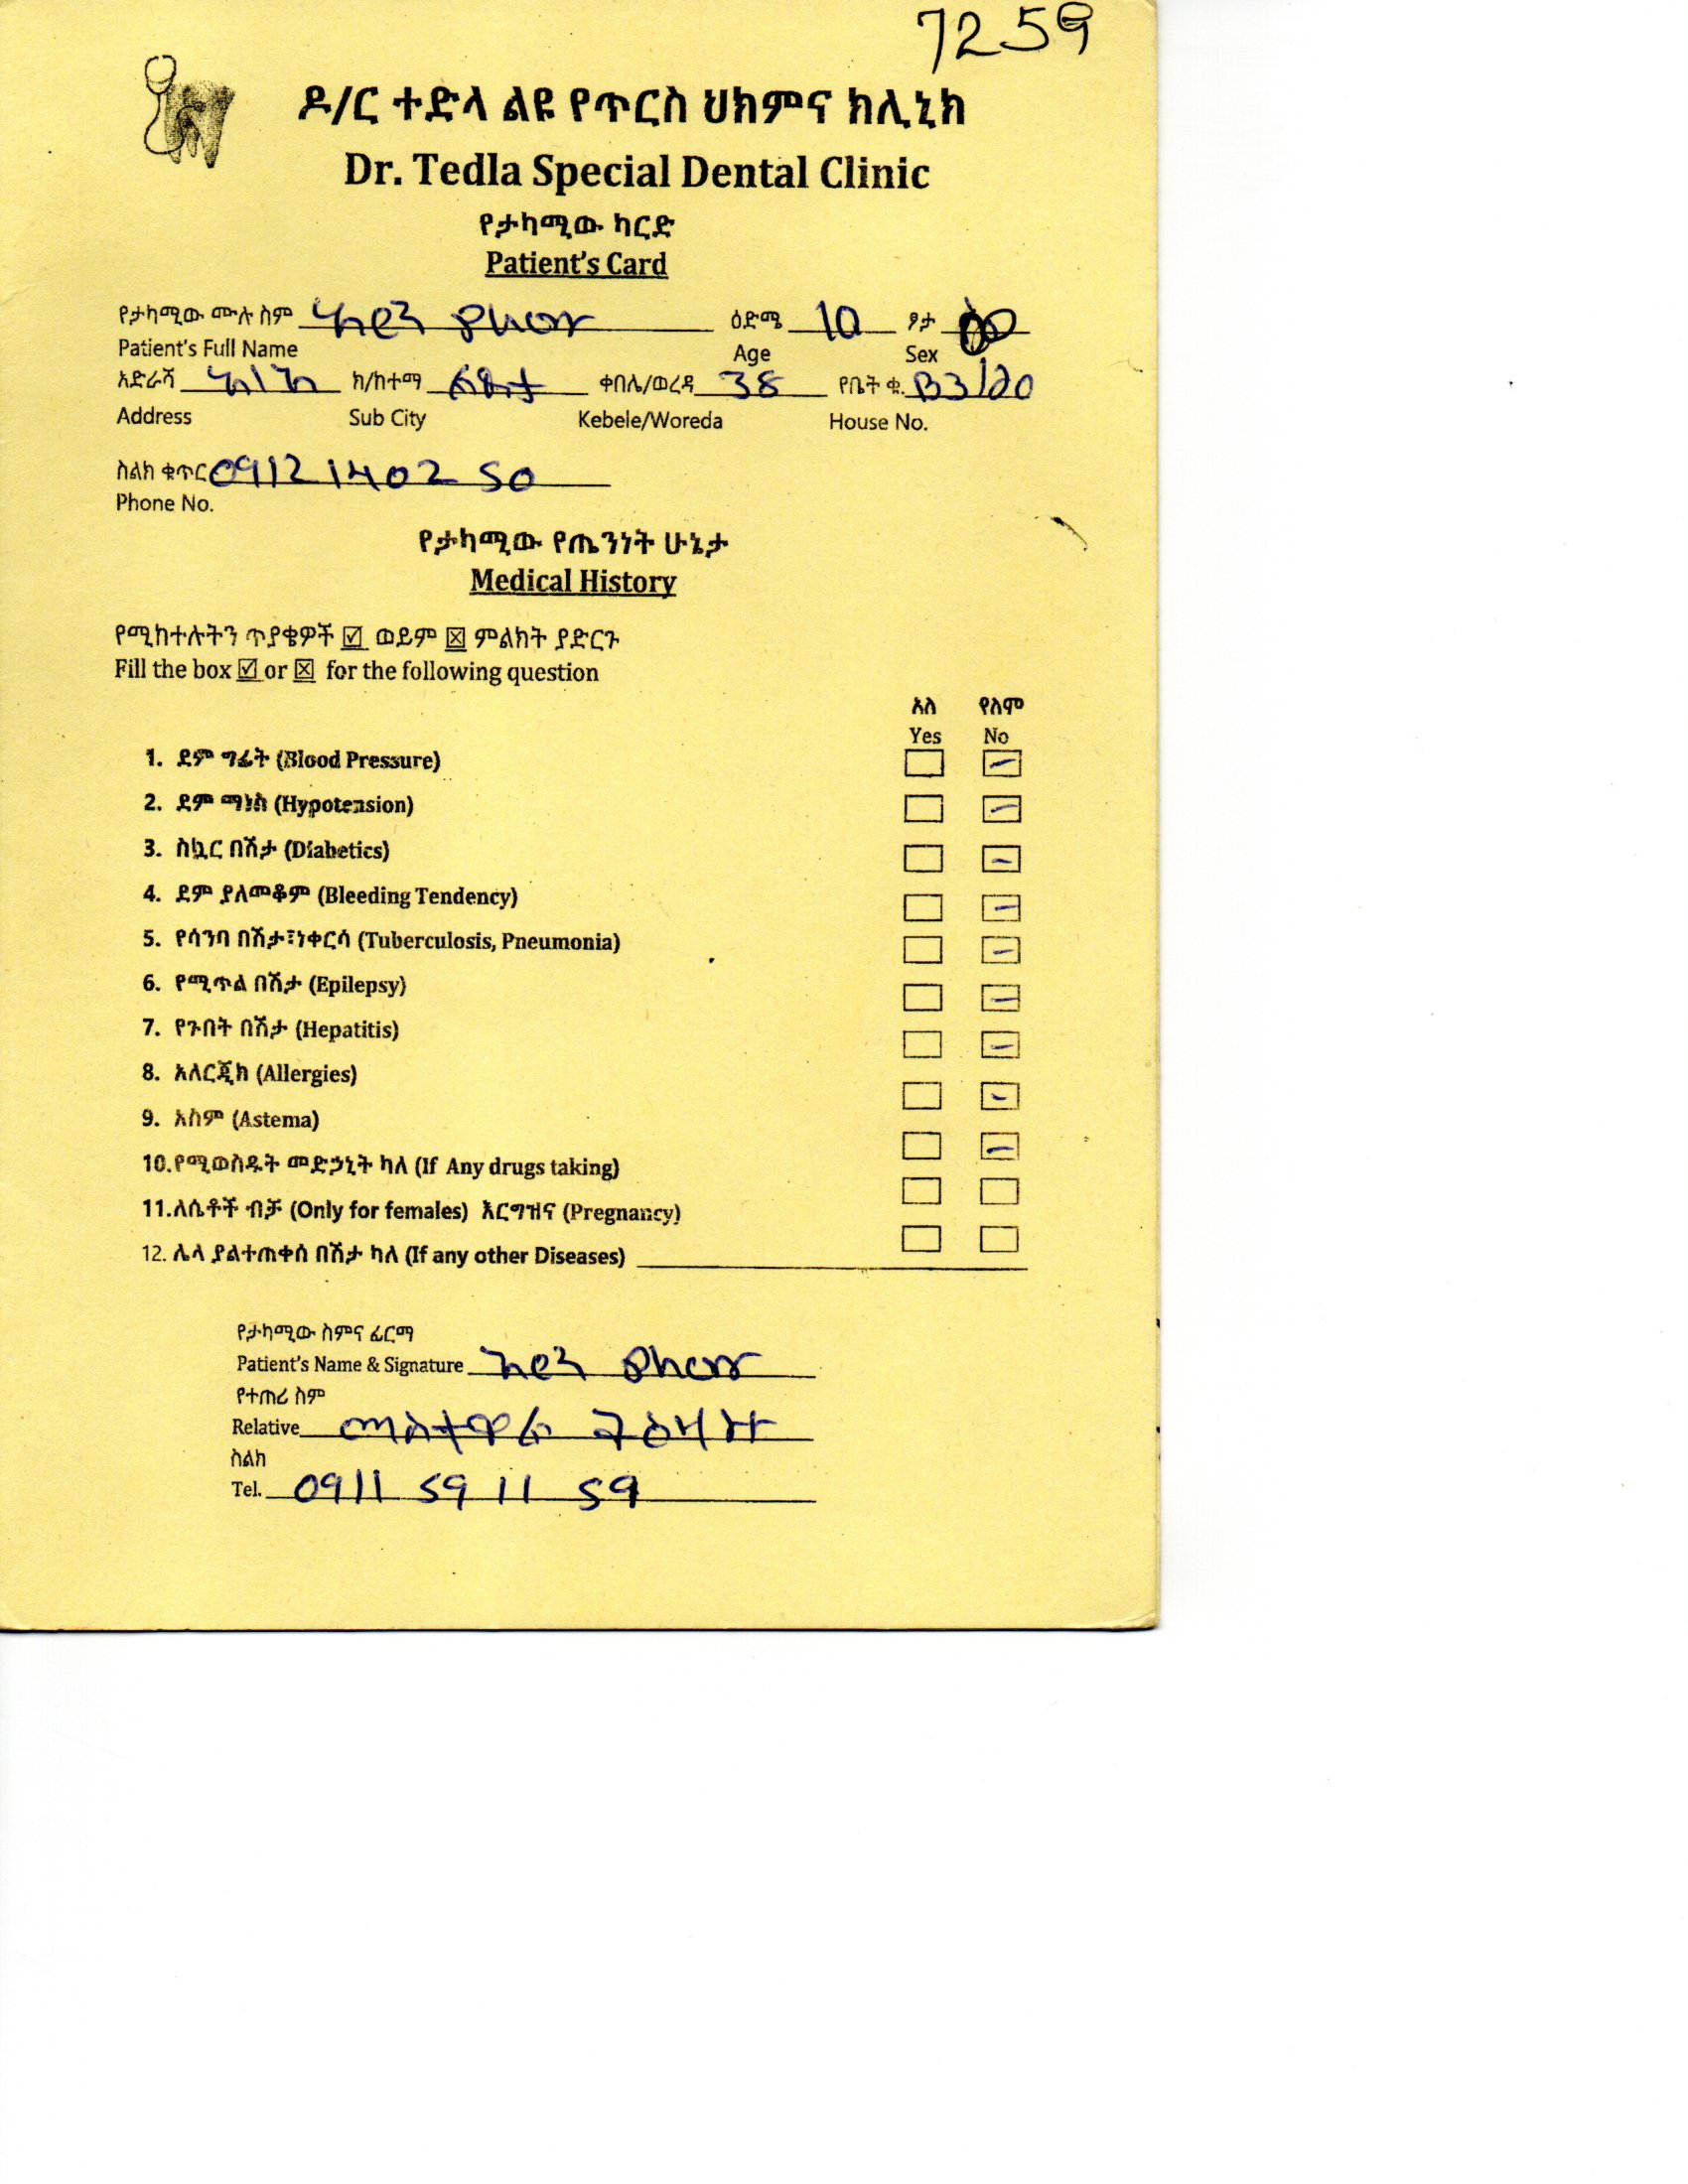 7259
ዶ/ር ተድላ ልዩ የጥርስ ህክምና ክሊኒክ
Dr. Tedla Special Dental Clinic
የታካሚው ካርድ
Patient's Card
የታካሚው ሙሉ ስም ዕድሜ 10 ፆታ
Patient's Full Name Age Sex
አድራሻ አ/አ ክ/ከተማ ቀበሌ/ወረዳ 38 የቤት ቁ. B3/20
Address Sub City Kebele/Woreda House No.
ስልክ ቁጥር 0912 1402 50
Phone No.
የታካሚው የጤንነት ሁኔታ
Medical History
የሚከተሉትን ጥያቄዎች ☑ ወይም ☒ ምልክት ያድርጉ
Fill the box ☑ or ☒ for the following question
አለ የለም
Yes No
1. ደም ግፊት (Blood Pressure)
2. ደም ማነስ (Hypotension)
3. ስኳር በሽታ (Diabetics)
4. ደም ያለመቆም (Bleeding Tendency)
5. የሳንባ በሽታ፣ነቀርሳ (Tuberculosis, Pneumonia)
6. የሚጥል በሽታ (Epilepsy)
7. የጉበት በሽታ (Hepatitis)
8. አለርጂክ (Allergies)
9. አስም (Astema)
10.የሚወስዱት መድኃኒት ካለ (If Any drugs taking)
11.ለሴቶች ብቻ (Only for females) እርግዝና (Pregnancy)
12. ሌላ ያልተጠቀሰ በሽታ ካለ (If any other Diseases)
የታካሚው ስምና ፊርማ
Patient's Name & Signature
የተጠሪ ስም
Relative
ስልክ
Tel. 0911 59 11 59